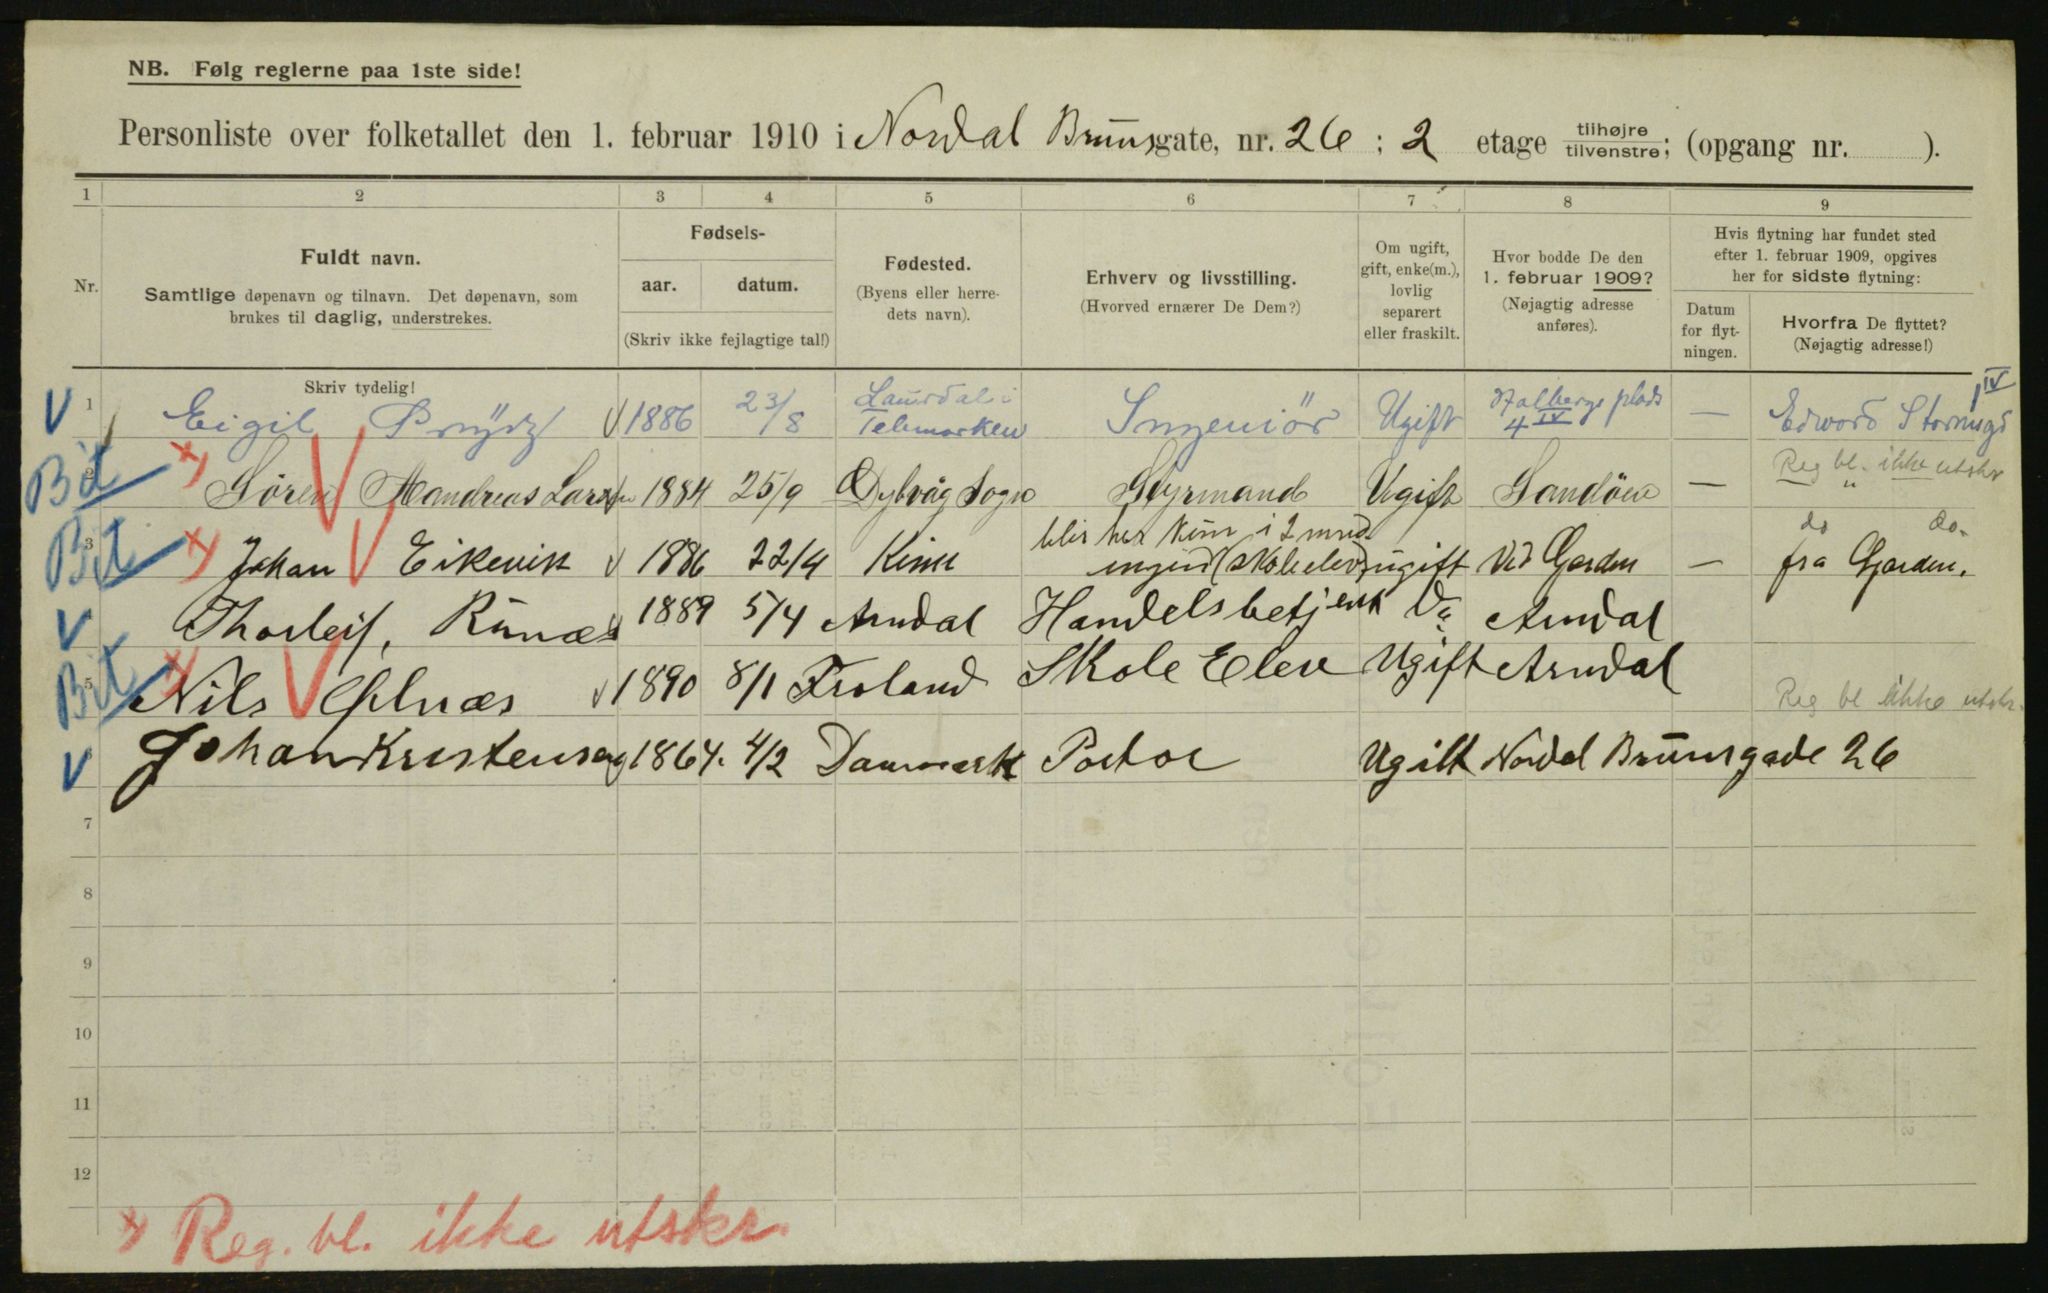 NB. Følg reglerne paa 1ste side!
Personliste over folketallet den 1. februar 1910 i Nordal Brunsgate, nr. 26 ; 2 etage tilhøjre/tilvenstre; (opgang nr. ).
1 2 3 4 5 6 7 8 9
Nr.
Fuldt navn.
Samtlige døpenavn og tilnavn. Det døpenavn, som
brukes til daglig, understrekes.
Skriv tydelig!
Fødsels-
aar. datum.
(Skriv ikke fejlagtige tal!)
Fødested.
(Byens eller herre-
dets navn).
Erhverv og livsstilling.
(Hvorved ernærer De Dem?)
Om ugift,
gift, enke(m.),
lovlig
separert
eller fraskilt.
Hvor bodde De den
1. februar 1909?
(Nøjagtig adresse
anføres).
Hvis flytning har fundet sted
efter 1. februar 1909, opgives
her for sidste flytning:
Datum
for flyt-
ningen.
Hvorfra De flyttet?
(Nøjagtig adresse!)
V 1 Eigil Prydz V 1886 23/8 Laurdal i Telemarken Ingeniör Ugift Holbergs plads 4 IV — Edvard Stormsgd 1 IV
Reg bl. ikke utskr
Bit 2 x) Sören Mandreas Larsen 1884 25/9 Dybvåg Sogn Styrmand Ugift Sandöen —
blir her kun i 2 mnd. do do.
Bit 3 x) Johan Eikevik V 1886 22/4 Kinn ingen (skoleelev) ugift Ved Garden — fra Garden.
V Thorleif, Runæs 1889 5/4 Arndal Handelsbetjent Do Arndal
Bit 5 x) Nils V 1890 8/1 Froland Skole Elev Ugift Arndal
Reg bl ikke utskr.
V Johan Kristensen 1864. 4/2 Danmark Portør Ugift Nordal Brunsgade 26
7
8
9
10
11
12
x) Reg. bl. ikke utskr.